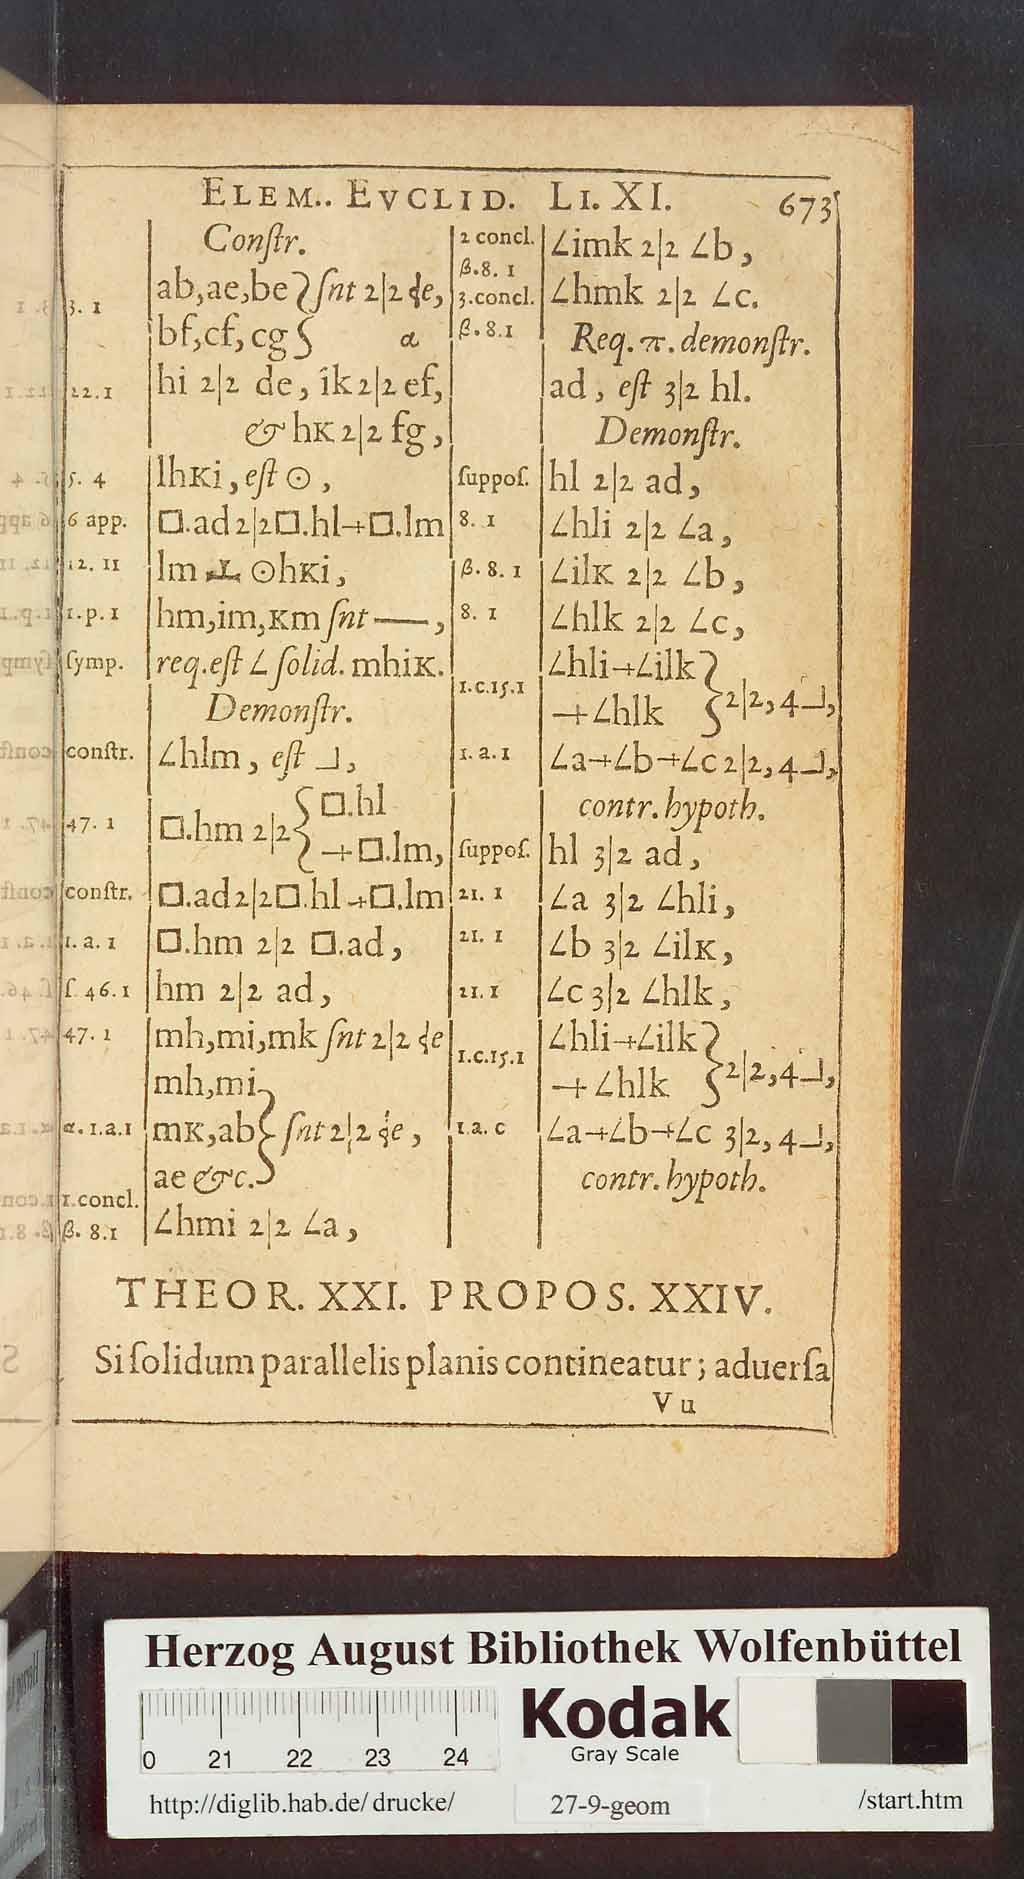 ELEM.. EVCLID. LI. XI. 673
Conſtr.
3. 1 ab,ae,be } ſnt 2|2 ꝗe,
bf,cf,cg } α
22. 1 hi 2|2 de, ik 2|2 ef,
& hK 2|2 fg,
5. 4 lhKi, eſt ⊙,
6 app. □.ad 2|2 □.hl+□.lm
12. 11 lm ⊥ ⊙hKi,
1.p. 1 hm,im,Km ſnt —,
ſymp. req.eſt ∠ ſolid. mhiK.
Demonſtr.
conſtr. ∠hlm, eſt ⅃,
47. 1 □.hm 2|2 { □.hl
+□.lm,
conſtr. □.ad 2|2 □.hl+□.lm
1. a. 1 □.hm 2|2 □.ad,
ſ. 46. 1 hm 2|2 ad,
47. 1 mh,mi,mk ſnt 2|2 ꝗe
mh,mi
α. 1.a.1 mK,ab } ſnt 2|2 ꝗe,
ae &c.
1.concl.
β. 8.1 ∠hmi 2|2 ∠a,
2 concl. ∠imk 2|2 ∠b,
β.8. 1
3.concl. ∠hmk 2|2 ∠c.
β. 8.1
Req. π. demonſtr.
ad, eſt 3|2 hl.
Demonſtr.
ſuppoſ. hl 2|2 ad,
8. 1 ∠hli 2|2 ∠a,
β. 8. 1 ∠ilK 2|2 ∠b,
8. 1 ∠hlk 2|2 ∠c,
∠hli+∠ilk
1.c.15.1 +∠hlk } 2|2, 4⅃,
1. a. 1 ∠a+∠b+∠c 2|2, 4⅃,
contr. hypoth.
ſuppoſ. hl 3|2 ad,
21. 1 ∠a 3|2 ∠hli,
21. 1 ∠b 3|2 ∠ilK,
21. 1 ∠c 3|2 ∠hlk,
∠hli+∠ilk
1.c.15.1 +∠hlk } 2|2, 4⅃,
1.a. c ∠a+∠b+∠c 3|2, 4⅃,
contr. hypoth.
THEOR. XXI. PROPOS. XXIV.
Si ſolidum parallelis planis contineatur; aduerſa
V u
Herzog August Bibliothek Wolfenbüttel
Kodak
Gray Scale
0 21 22 23 24
http://diglib.hab.de/ drucke/ 27-9-geom /start.htm